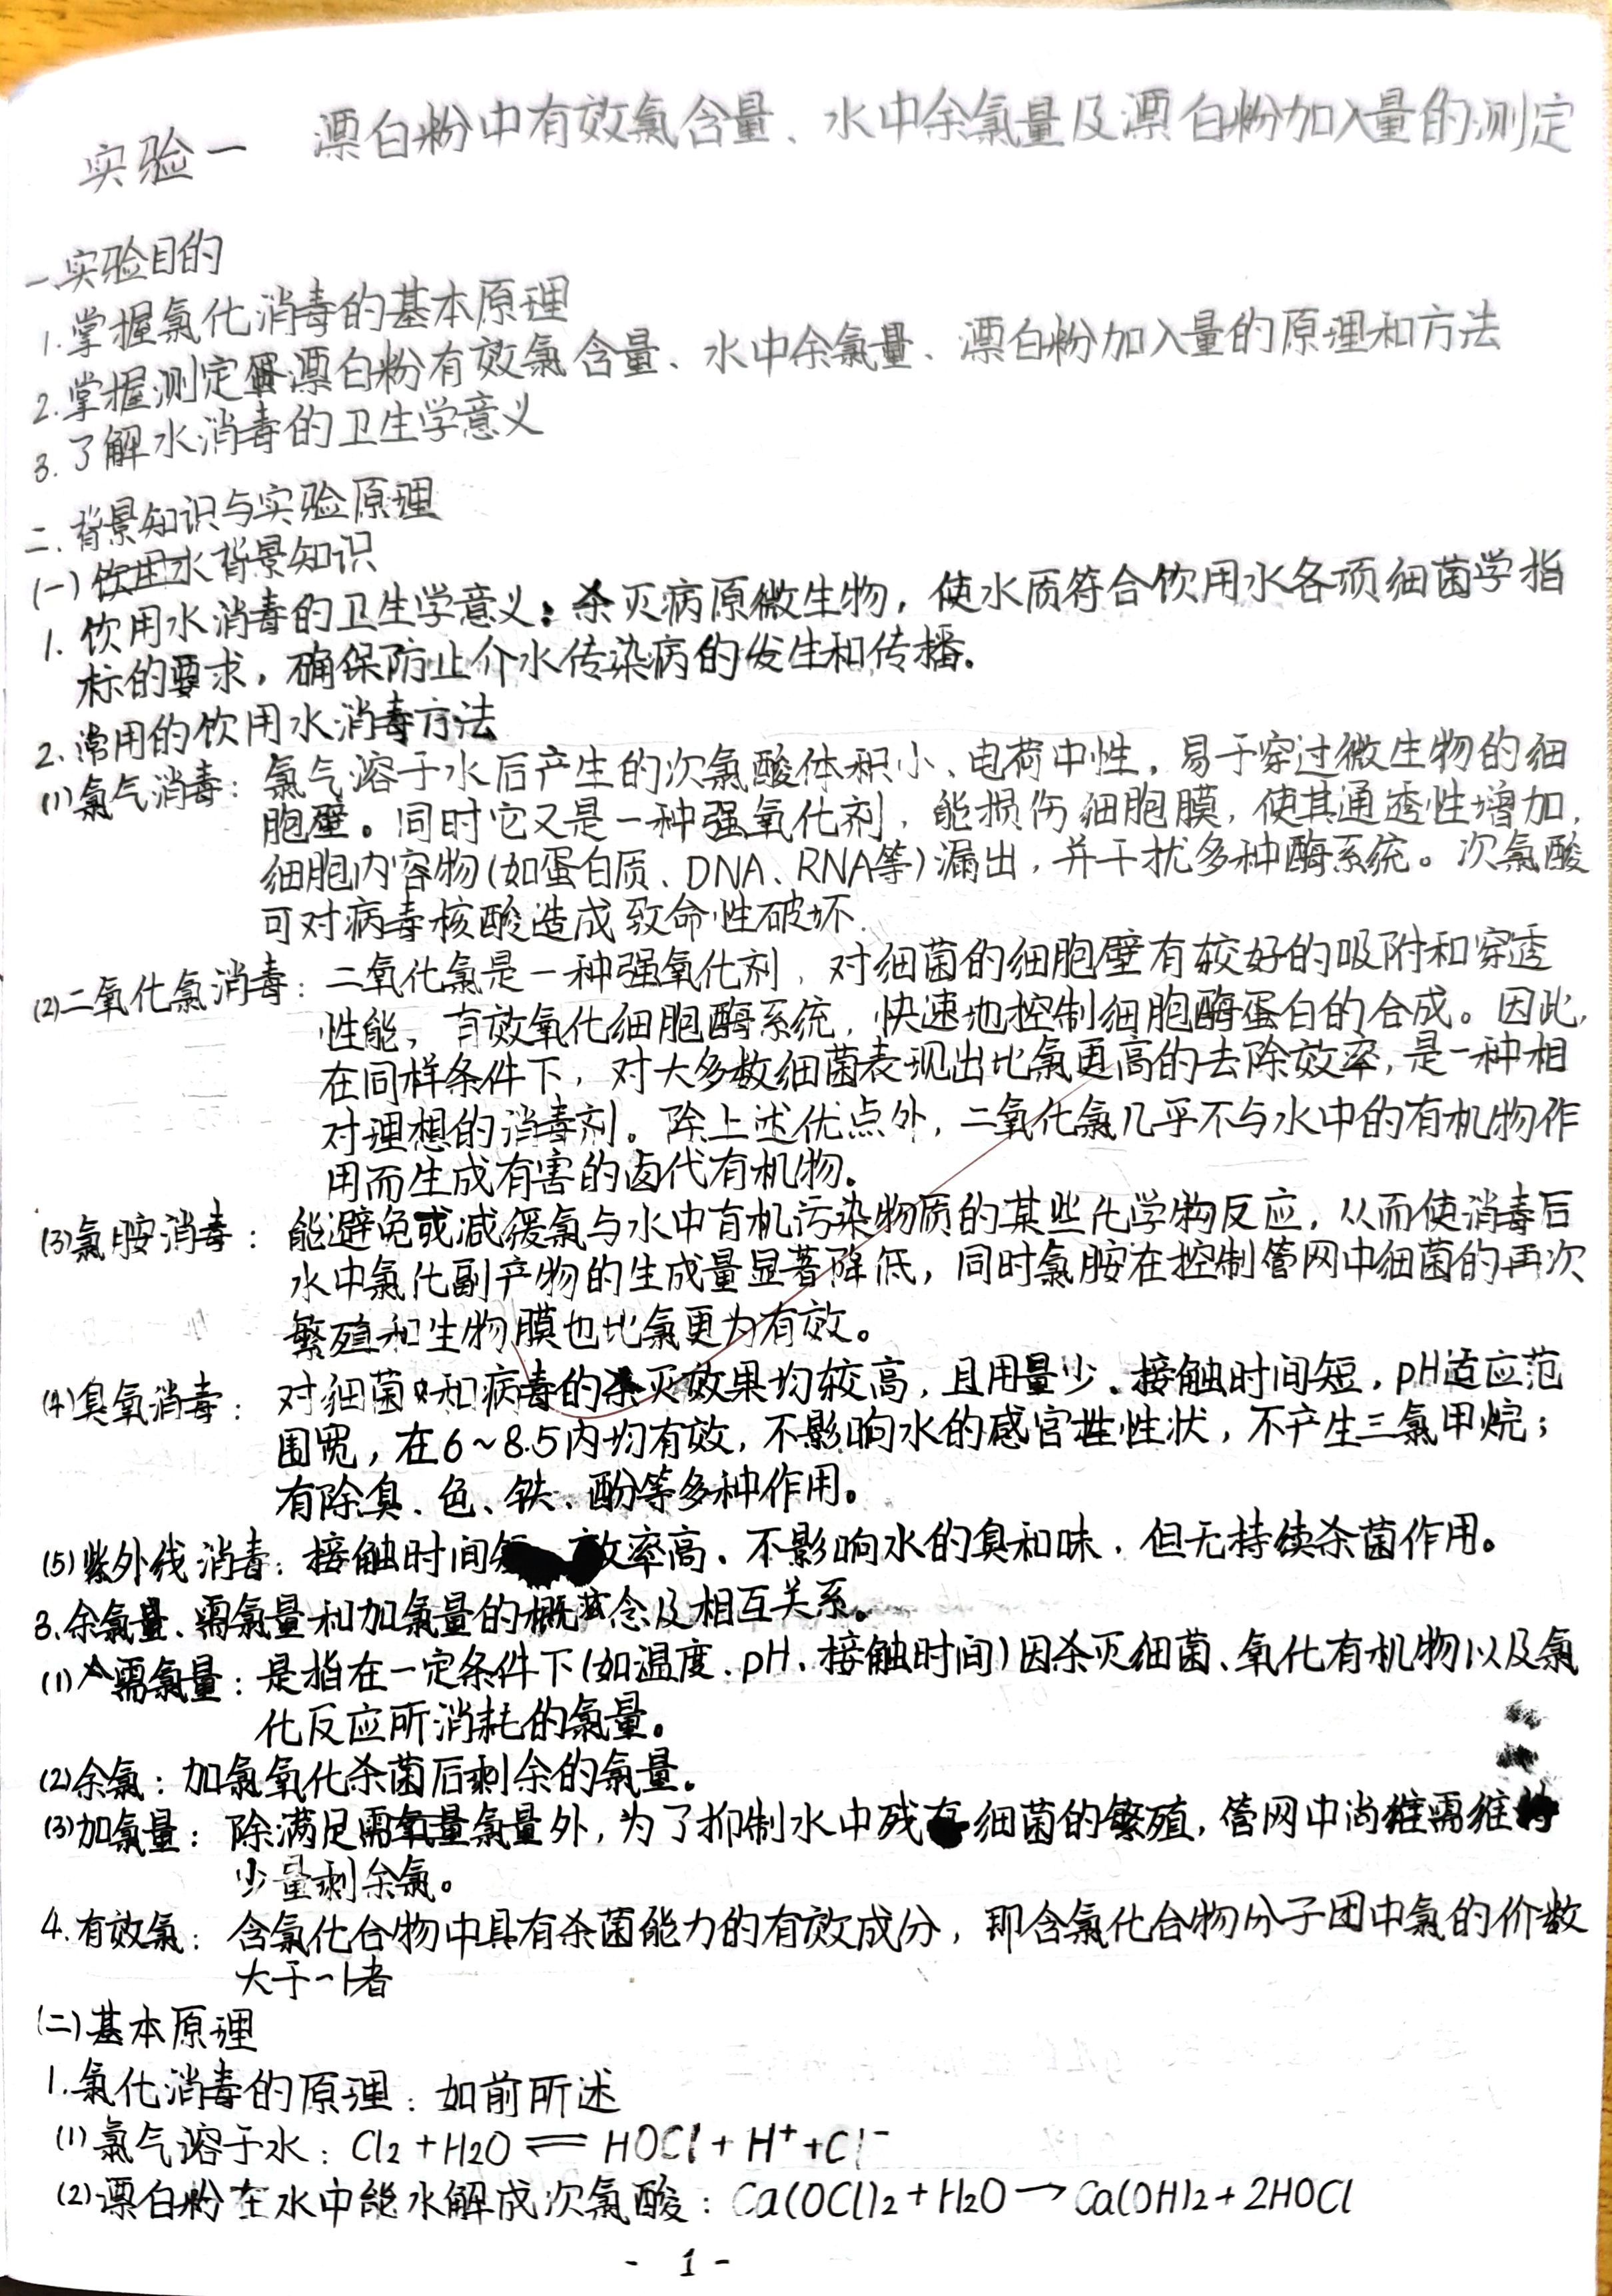 实验一 漂白粉中有效氯含量、水中余氯量及漂白粉加入量的测定
一.实验目的
1.掌握氯化消毒的基本原理
2.掌握测定漂白粉有效氯含量、水中余氯量、漂白粉加入量的原理和方法
3.了解水消毒的卫生学意义
二.背景知识与实验原理
(一)饮用水背景知识
1.饮用水消毒的卫生学意义:杀灭病原微生物,使水质符合饮用水各项细菌学指
标的要求,确保防止介水传染病的发生和传播。
2.常用的饮用水消毒方法
(1)氯气消毒:氯气溶于水后产生的次氯酸体积小、电荷中性,易于穿过微生物的细
胞壁。同时它又是一种强氧化剂,能损伤细胞膜,使其通透性增加,
细胞内容物(如蛋白质、DNA、RNA等)漏出,并干扰多种酶系统。次氯酸
可对病毒核酸造成致命性破坏.
(2)二氧化氯消毒:二氧化氯是一种强氧化剂,对细菌的细胞壁有较好的吸附和穿透
性能,有效氧化细胞酶系统,快速地控制细胞酶蛋白的合成。因此,
在同样条件下,对大多数细菌表现出比氯更高的去除效率,是一种相
对理想的消毒剂。除上述优点外,二氧化氯几乎不与水中的有机物作
用而生成有害的卤代有机物。
(3)氯胺消毒:能避免或减缓氯与水中有机污染物质的某些化学物反应,从而使消毒后
水中氯化副产物的生成量显著降低,同时氯胺在控制管网中细菌的再次
繁殖和生物膜也比氯更为有效。
(4)臭氧消毒:对细菌和病毒的杀灭效果均较高,且用量少、接触时间短,pH适应范
围宽,在6~8.5内均有效,不影响水的感官性状,不产生三氯甲烷;
有除臭、色、铁、酚等多种作用。
(5)紫外线消毒:接触时间 效率高、不影响水的臭和味,但无持续杀菌作用。
3.余氯量、需氯量和加氯量的概念及相互关系。
(1)需氯量:是指在一定条件下(如温度、pH、接触时间)因杀灭细菌、氧化有机物以及氯
化反应所消耗的氯量。
(2)余氯:加氯氧化杀菌后剩余的氯量。
(3)加氯量:除满足需氯量外,为了抑制水中残存细菌的繁殖,管网中尚需维持
少量剩余氯。
4.有效氯:含氯化合物中具有杀菌能力的有效成分,即含氯化合物分子团中氯的价数
大于-1者
(二)基本原理
1.氯化消毒的原理:如前所述
(1)氯气溶于水:Cl₂+H₂O⇌HOCl+H⁺+Cl⁻
(2)漂白粉在水中能水解成次氯酸:Ca(OCl)₂+H₂O→Ca(OH)₂+2HOCl
- 1 -